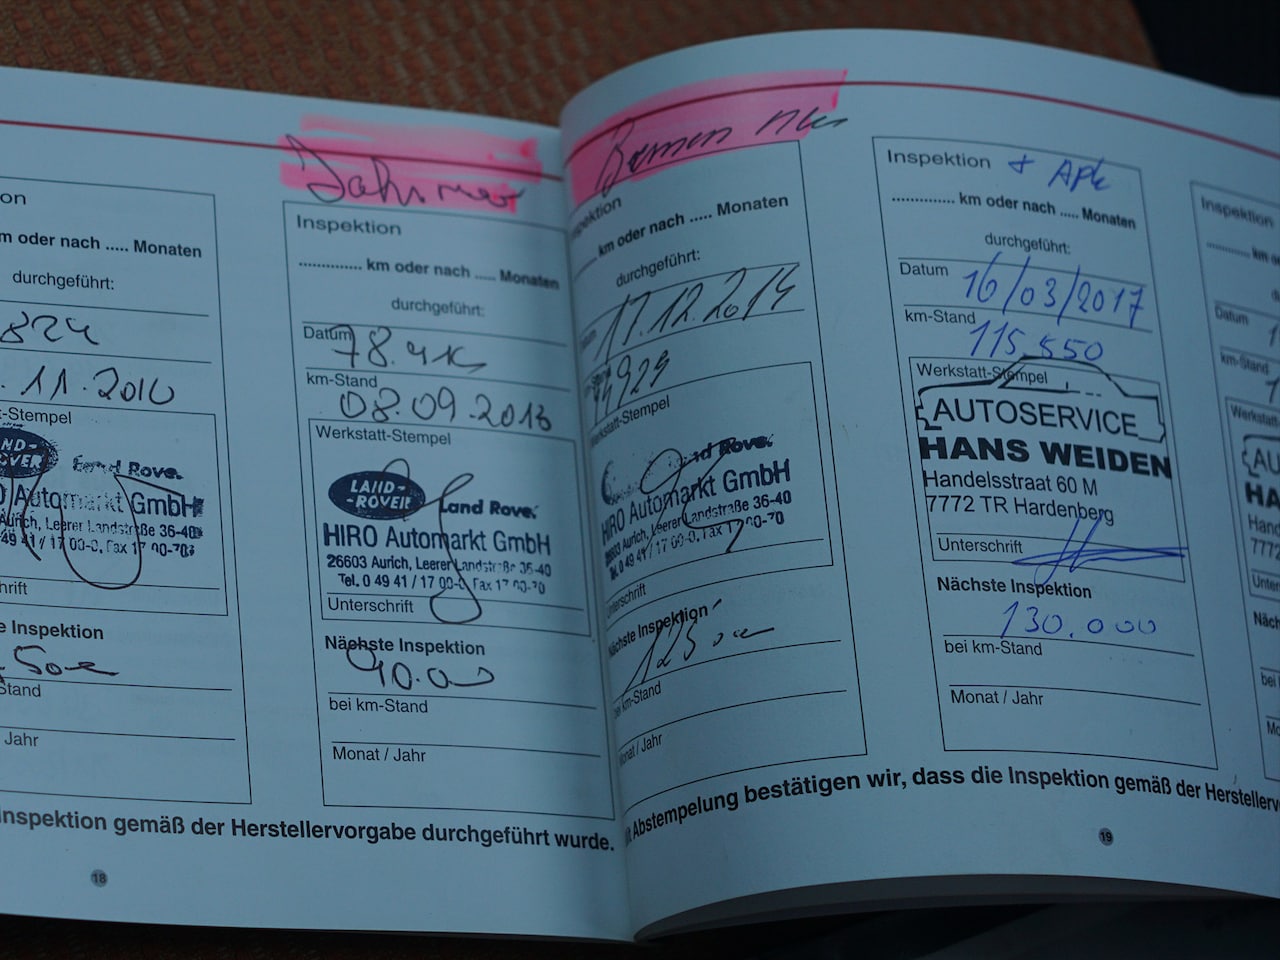 on
m oder nach ..... Monaten
durchgeführt:
824
. 11.2010
t-Stempel
ND-
OVER
Land Rover
O Automarkt GmbH
Aurich, Leerer Landstraße 36-40
49 41 / 17 00-0, Fax 17 00-70
hrift
e Inspektion
Stand
Jahr
Inspektion gemäß der Herstellervorgabe durchgeführt wurde.
18
Inspektion
.............. km oder nach ..... Monaten
durchgeführt:
Datum
km-Stand
08.09.2013
Werkstatt-Stempel
LAND-
-ROVER
Land Rover
HIRO Automarkt GmbH
26603 Aurich, Leerer Landstraße 36-40
Tel. 0 49 41 / 17 00-0, Fax 17 00-70
Unterschrift
Nächste Inspektion
90.000
bei km-Stand
Monat / Jahr
spektion
..... km oder nach ..... Monaten
durchgeführt:
17.12.2014
Werkstatt-Stempel
nd Rover
HIRO Automarkt GmbH
26603 Aurich, Leerer Landstraße 36-40
Tel. 0 49 41 / 17 00-0, Fax 17 00-70
Unterschrift
Nächste Inspektion
bei km-Stand
Monat / Jahr
Inspektion + APK
.............. km oder nach ..... Monaten
durchgeführt:
Datum 16/03/2017
km-Stand 115.550
Werkstatt-Stempel
AUTOSERVICE
HANS WEIDEN
Handelsstraat 60 M
7772 TR Hardenberg
Unterschrift
Nächste Inspektion
130.000
bei km-Stand
Monat / Jahr
Inspektion
.............. km o
Datum
km-Stand
Werkstatt
AU
HA
Hand
7772
Unter
Näch
bei
Mo
t Abstempelung bestätigen wir, dass die Inspektion gemäß der Herstellerv
19